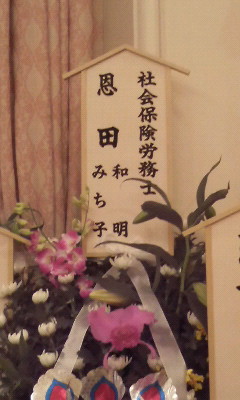 社会保険労務士
恩田
和明
みち子